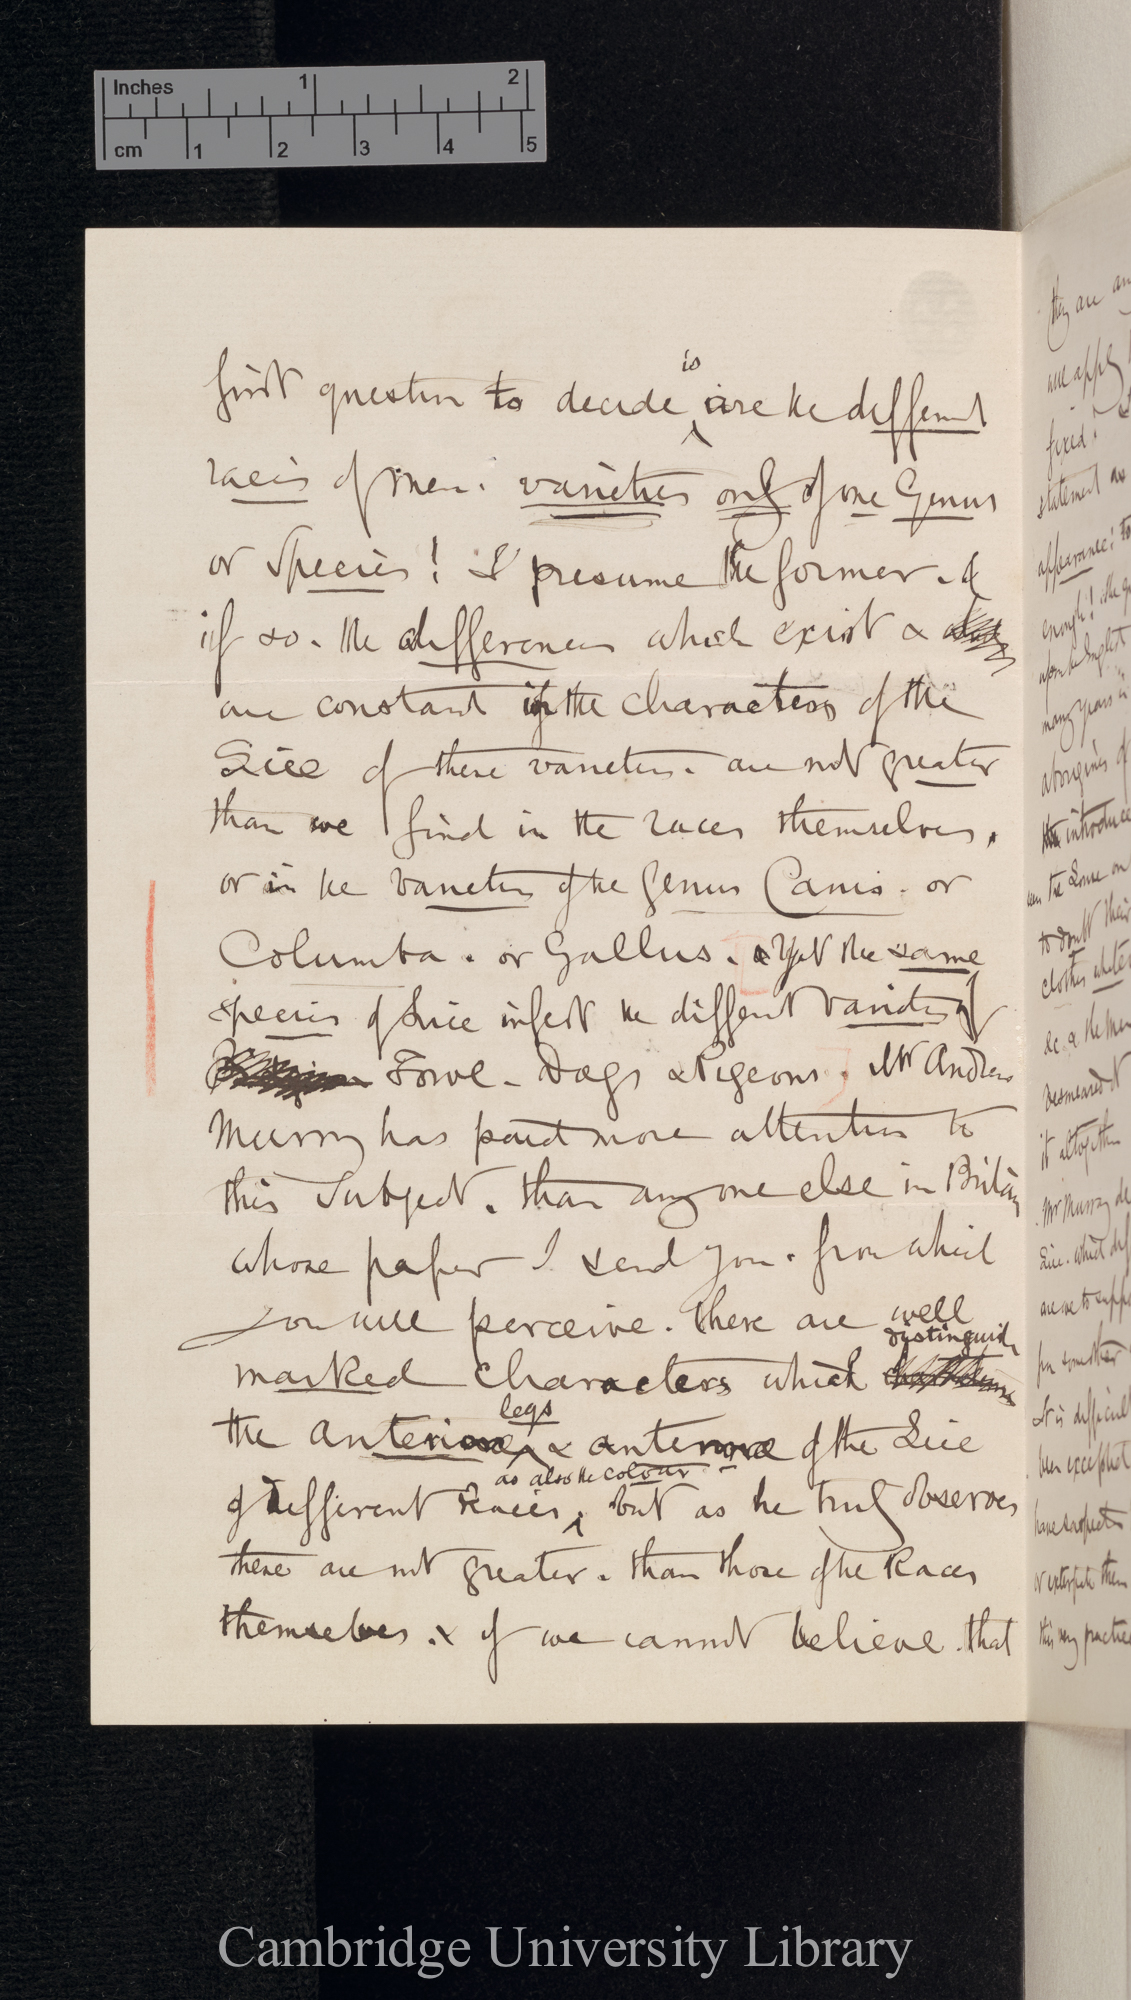 Inches 1 2
cm 1 2 3 4 5
first question to decide is are the different
races of men. varieties only of one Genus
or Species! I presume the former. &
if so. the differences which exist &
are constant in the characters of the
Lice of these varieties. are not greater
than we find in the races themselves.
or in the varieties of the Genus Canis. or
Columba. or Gallus. & Yet the same
species of Lice infest the different varieties of
Fowl. Dogs & Pigeons. Mr Andrew
Murray has paid more attention to
this Subject. than any one else in Britain
whose paper I send you. from which
you will perceive. there are well
marked characters which distinguish
the anterior legs & antennae of the Lice
of different Races, as also the colour but as he truly observes
these are not greater. than those of the Races
themselves. & if we cannot believe. that
they are
will apply
fixed!
statement
appearance:
enough! the
upon the English
many years
aborigines of
introduce
to doubt their
clothes
besmeared
it altogether
Mr Murray
Lice. which
are we to
for
It is difficult
been
have
or extirpate them
this very practice
Cambridge University Library